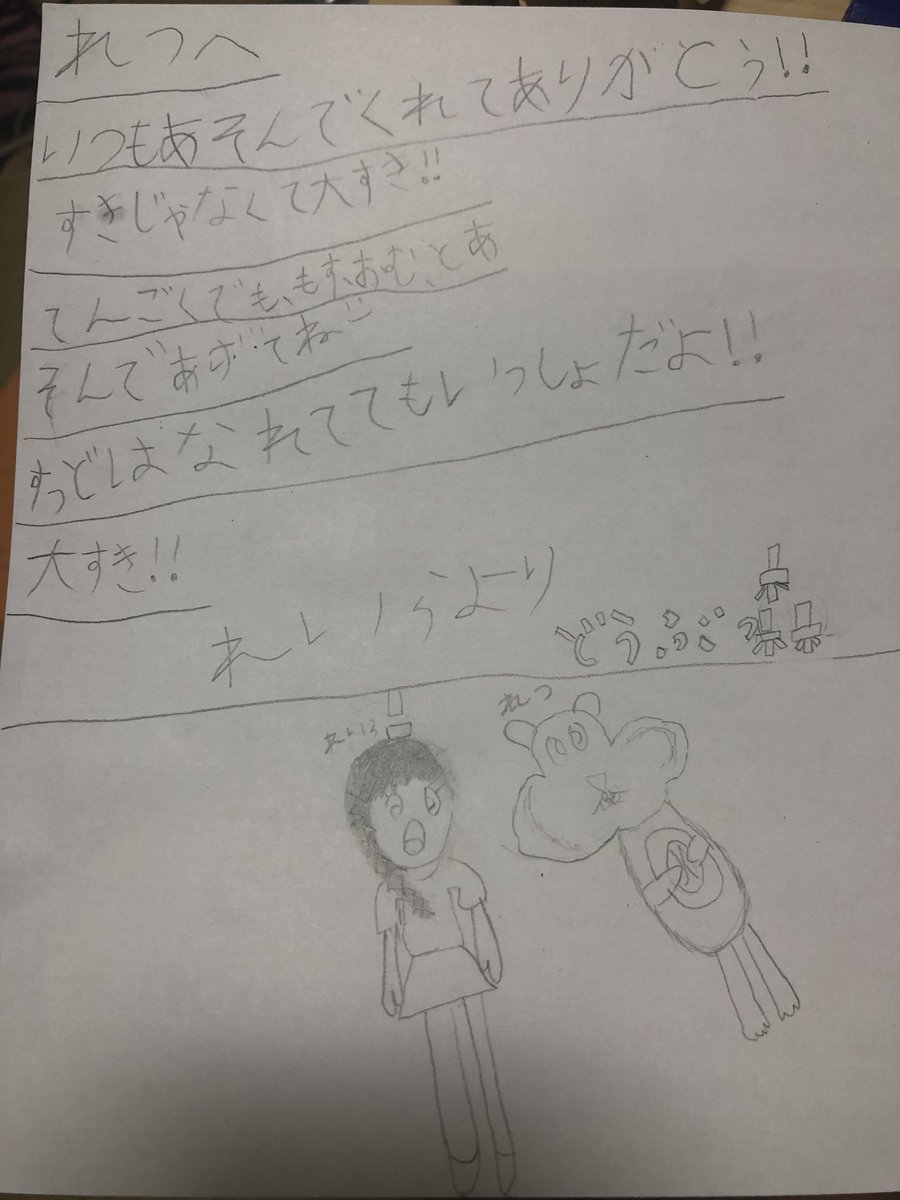 れつへ
いつもあそんでくれてありがとう!!
すきじゃなくて大すき!!
てんごくでも、もす、おむ、とあ
そんであげてねご
すっどはなれててもいっしょだよ!!
大すき!!
れいらより
どうぶつ
れいら
れつ